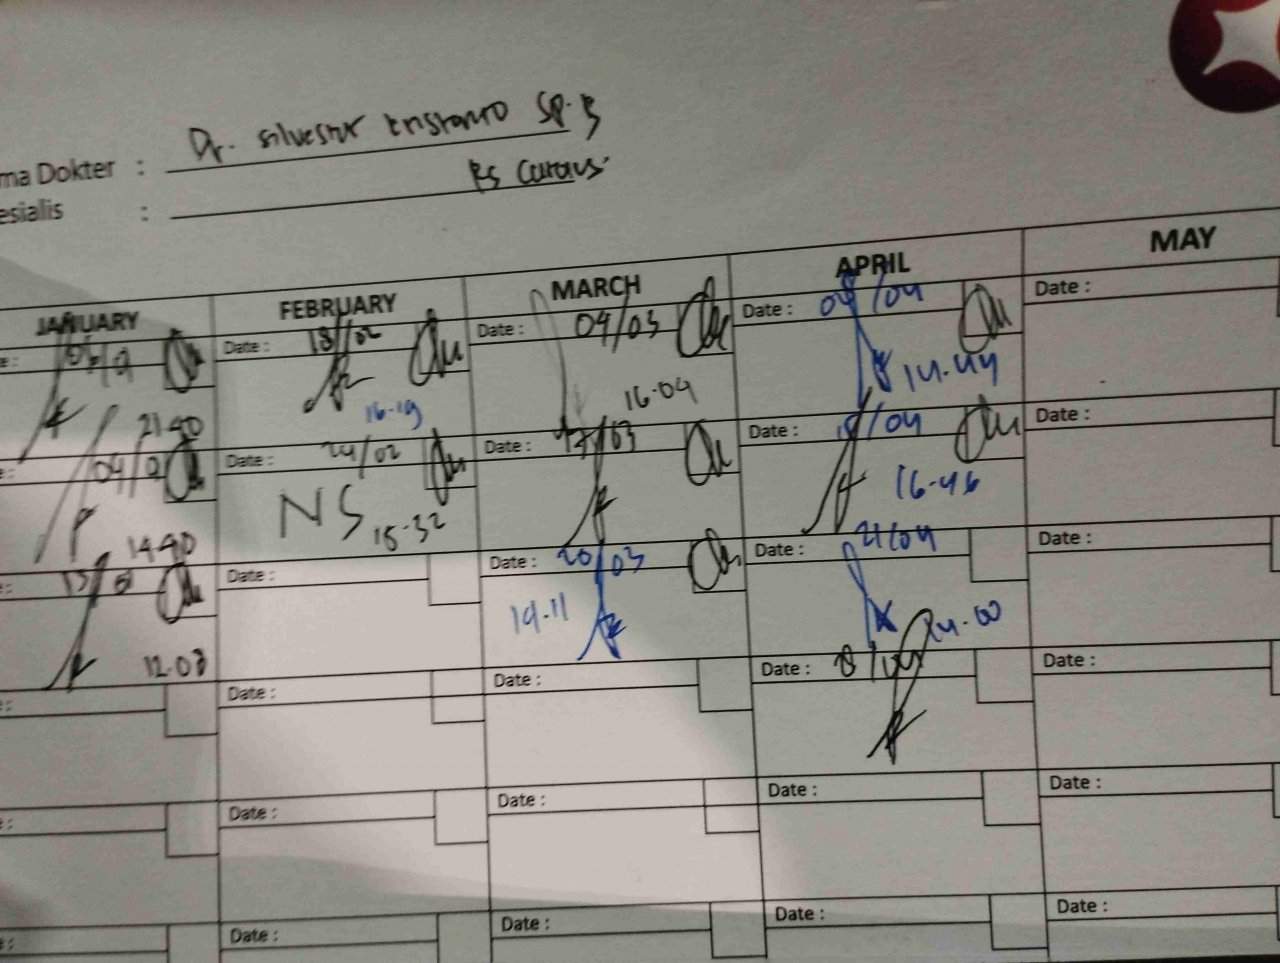 ma Dokter : Dr. Silvester Kristanto SP.B
esialis : RS Carolus
JANUARY FEBRUARY MARCH APRIL MAY
Date : 18/02 Date : 04/03 Date : 04/04 Date :
21.40 16-19 16-04 14-44
Date : 24/02 Date : 17/03 Date : /04 Date :
14.40 NS 15-32 16-46
Date : Date : 20/03 Date : 21/04 Date :
12.08 19-11 14.00
Date : Date : Date : Date :
Date : Date : Date : Date :
Date : Date : Date : Date :